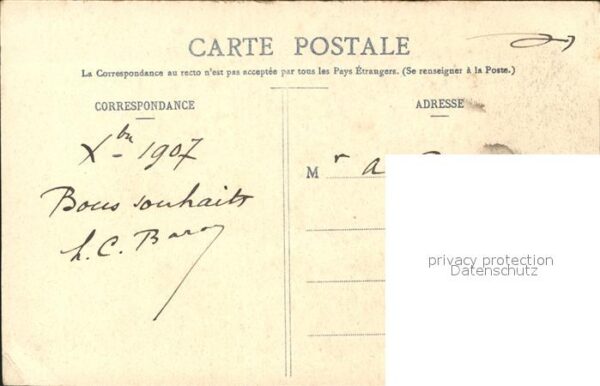 CARTE POSTALE
La Correspondance au recto n'est pas acceptée par tous les Pays Étrangers. (Se renseigner à la Poste.)
CORRESPONDANCE
ADRESSE
Xbre 1907
Mr a
Bons souhaits
h. C. Baron
privacy protection
Datenschutz